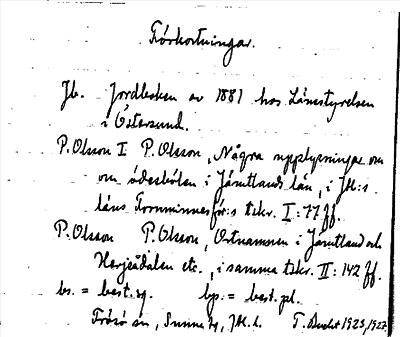 Förkortningar.
Jb. Jordboken av 1881 hos Länsstyrelsen
i Östersund.
P. Olsson I P. Olsson, Några upplysningar om
om ödesbölen i Jämtlands län, i Jtl:s
läns Fornminnesför:s tskr. I: 77 ff.
P. Olsson P. Olsson, Ortnamnen i Jämtland och
Herjeådalen etc., i samma tskr. II: 142 ff.
bs. = best. sg. bp. = best. pl.
Frösö sn, Sunne tg, Jtl. l. 1925, 1927.